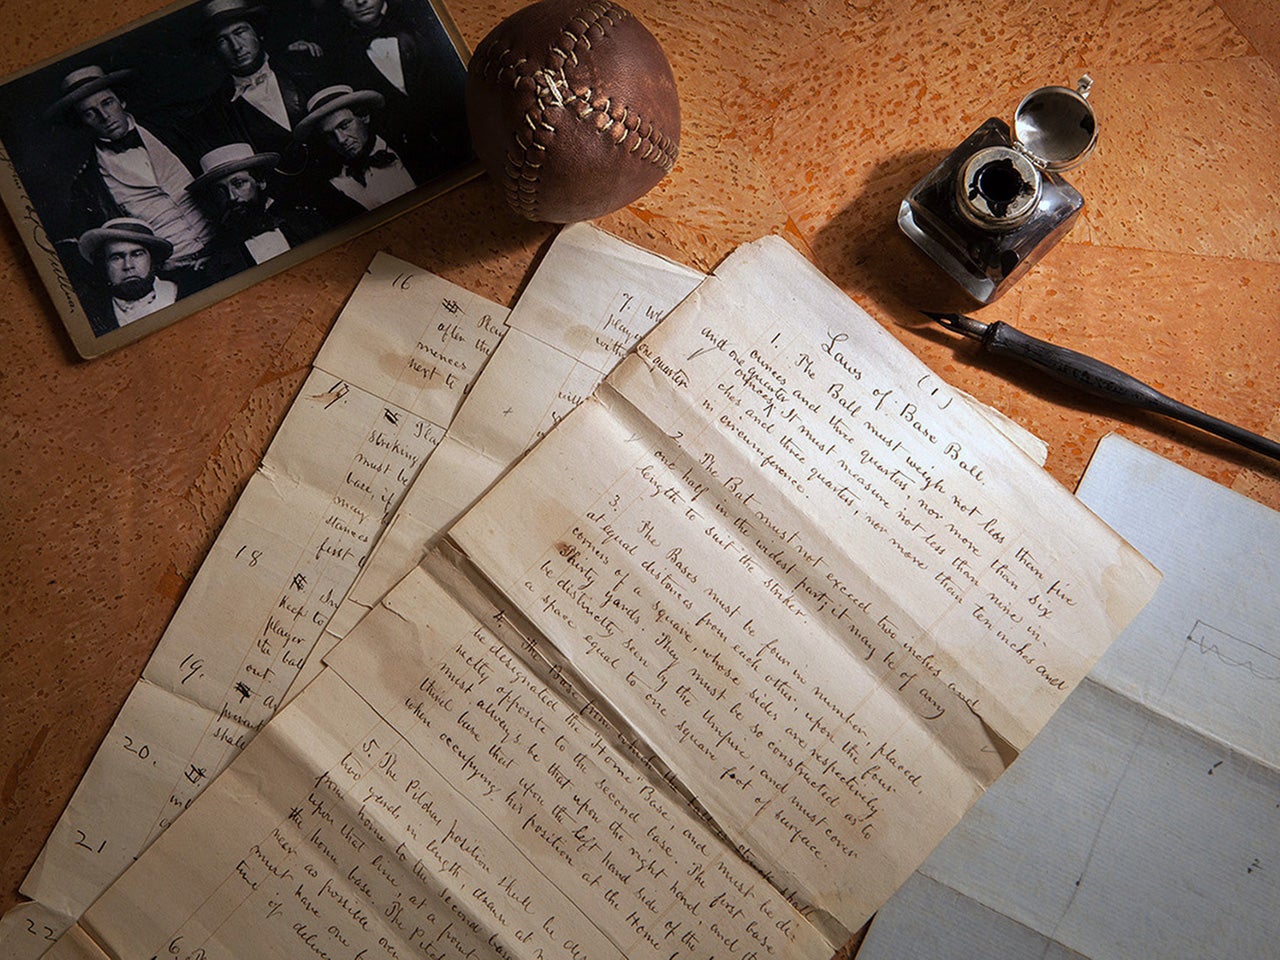 (1)
Laws of Base Ball.
1. The Ball must weigh not less than five
ounces and three quarters, nor more than six
and one quarter ounces. It must measure not less than nine in
one quarter
ches and three quarters, nor more than ten inches and
in circumference.
2. The Bat must not exceed two inches and
one half in the widest part; it may be of any
length to suit the striker.
3. The Bases must be four in number, placed
at equal distances from each other, upon the four
corners of a square, whose sides are respectively
Thirty yards. They must be so constructed as to
be distinctly seen by the Umpire, and must cover
a space equal to one square foot of surface.
4. The Base from which the ball is struck shall
be designated the "Home" Base, and must be di-
rectly opposite to the second base. The first base
must always be that upon the right hand, and the
third base that upon the left hand side of the
when occupying his position at the Home
5. The Pitcher's position shall be des
two yards in length, drawn at
from home to the second base
upon that line, at a point
the home base. The pitch
near as possible over
must have one
of deliver
time.
6.
7.
play
with
will
16
Play
after the
mences
next to
17
Play
striking
must be
base, if
may
stances
first
18
keep to
player
the bal
out
19.
shall
20.
21
22